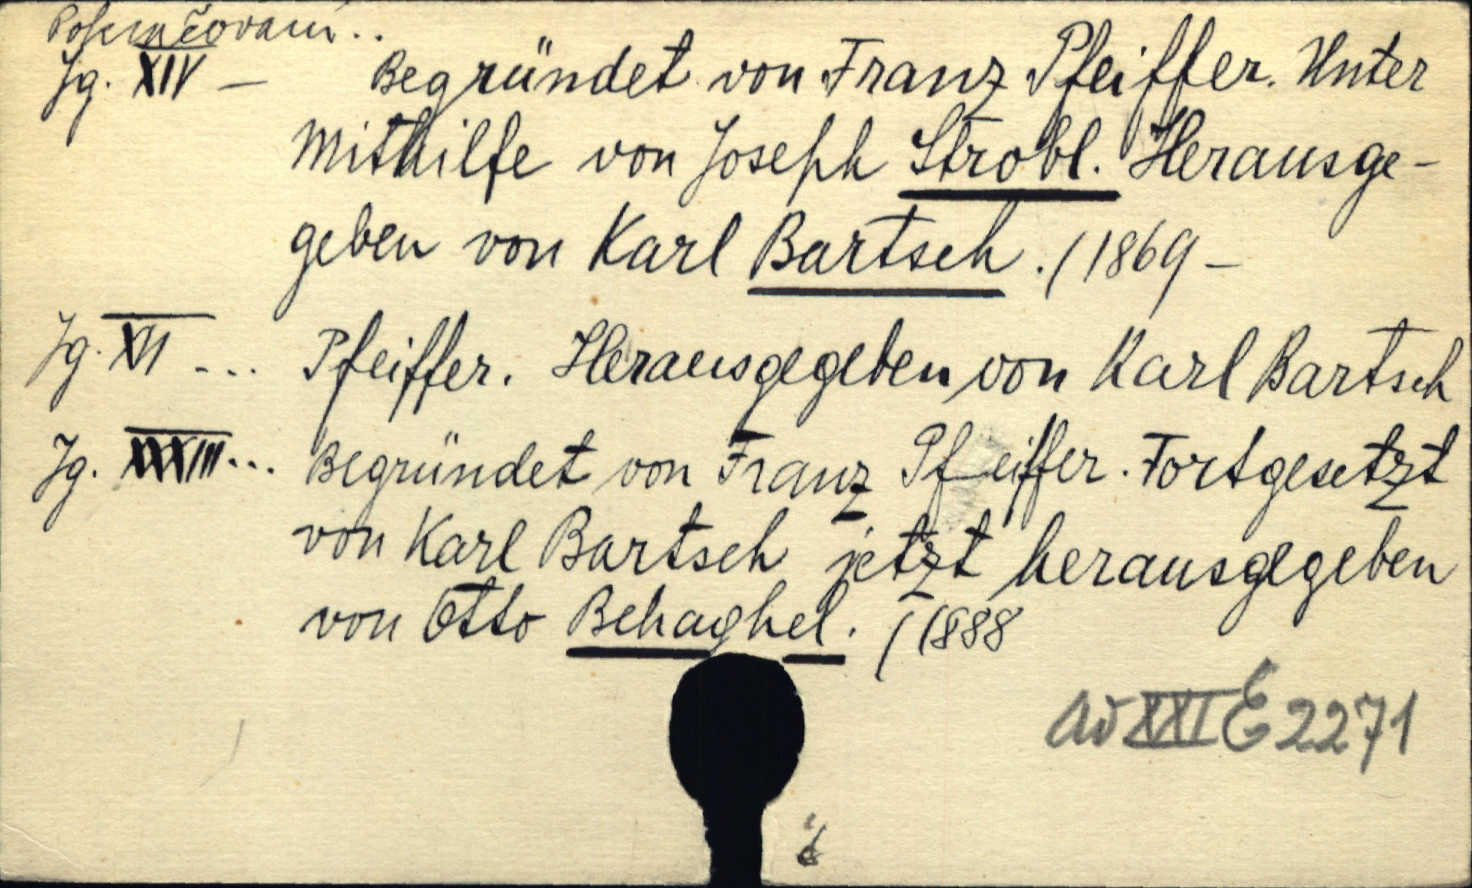 Pokračování..
Jg. XIV – Begründet von Franz Pfeiffer. Unter
Mithilfe von Joseph Strobl. Herausge-
geben von Karl Bartsch. (1869 –
Jg. XVI ... Pfeiffer. Herausgegeben von Karl Bartsch
Jg. XXXIII... Begründet von Franz Pfeiffer. Fortgesetzt
von Karl Bartsch jetzt herausgegeben
von Otto Behaghel. (1888
ad XXI E 2271